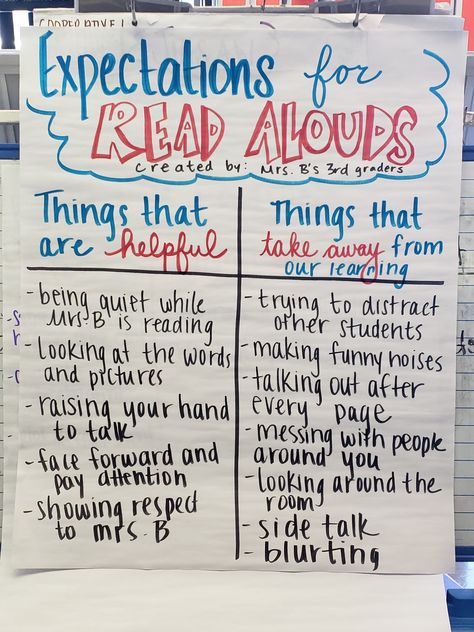 COOPERATIVE L
Expectations for
READ ALOUDS
Created by: Mrs. B's 3rd graders
Things that
are helpful
- being quiet while
Mrs. B is reading
- looking at the words
and pictures
- raising your hand
to talk
- face forward and
pay attention
- showing respect
to mrs. B
Things that
take away from
our learning
- trying to distract
other students
- making funny noises
- talking out after
every page
- messing with people
around you
- looking around the
room
- side talk
- blurting